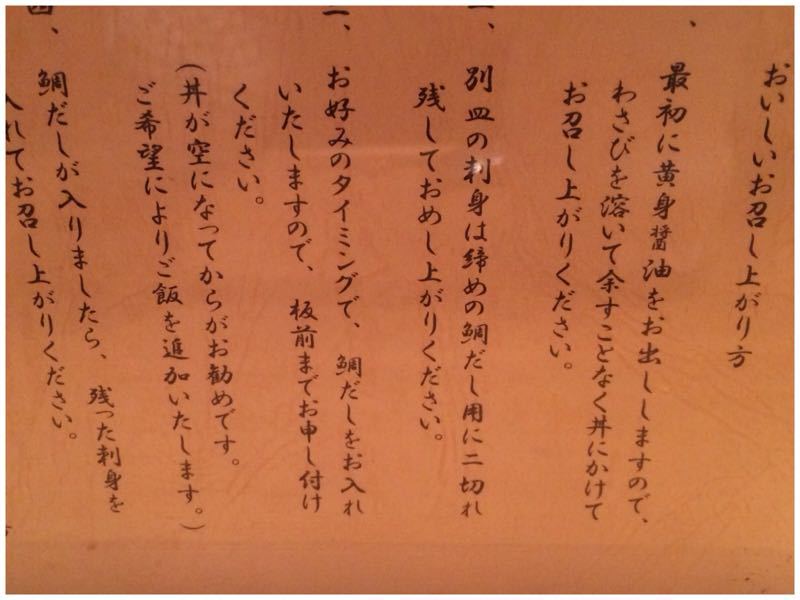 おいしいお召し上がり方
、最初に黄身醤油をお出ししますので、
わさびを溶いて余すことなく丼にかけて
お召し上がりください。
、別皿の刺身は締めの鯛だし用に二切れ
残しておめし上がりください。
、お好みのタイミングで、鯛だしをお入れ
いたしますので、板前までお申し付け
ください。
(丼が空になってからがお勧めです。
ご希望によりご飯を追加いたします。)
四、鯛だしが入りましたら、残った刺身を
入れてお召し上がりください。